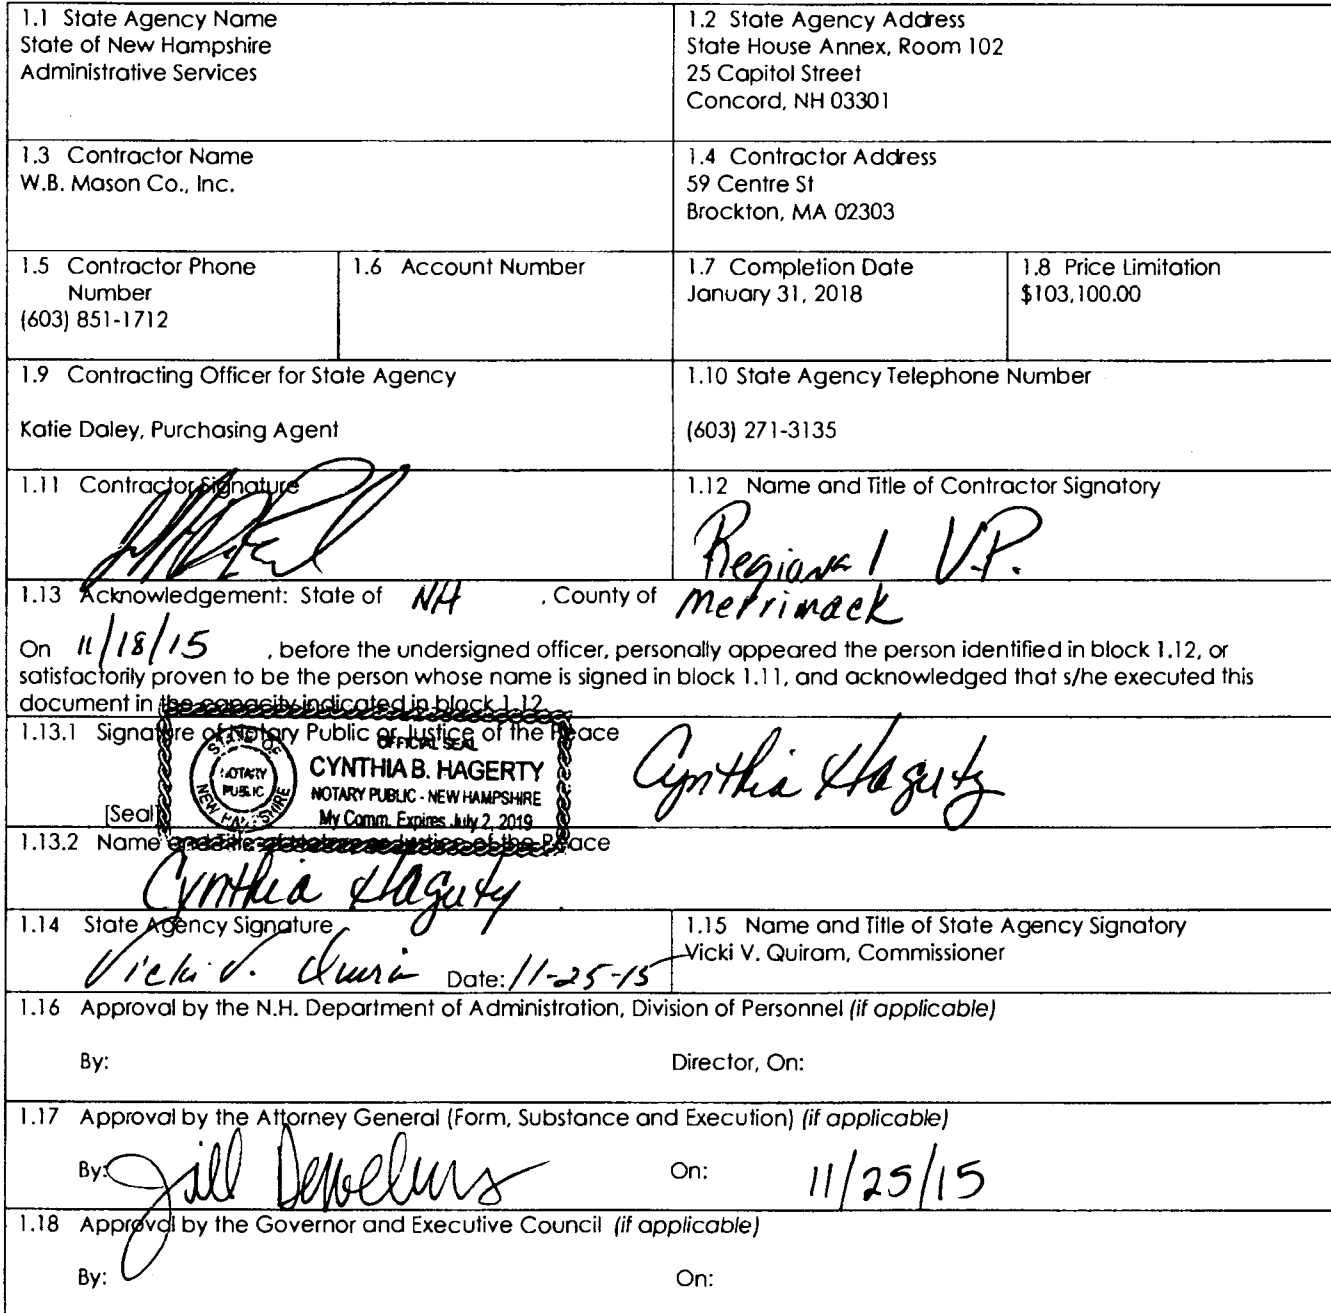 1.1 State Agency Name
State of New Hampshire
Administrative Services
1.2 State Agency Address
State House Annex, Room 102
25 Capitol Street
Concord, NH 03301
1.3 Contractor Name
W.B. Mason Co., Inc.
1.4 Contractor Address
59 Centre St
Brockton, MA 02303
1.5 Contractor Phone
Number
(603) 851-1712
1.6 Account Number
1.7 Completion Date
January 31, 2018
1.8 Price Limitation
$103,100.00
1.9 Contracting Officer for State Agency
Katie Daley, Purchasing Agent
1.10 State Agency Telephone Number
(603) 271-3135
1.11 Contractor Signature
1.12 Name and Title of Contractor Signatory
Regional V.P.
1.13 Acknowledgement: State of NH , County of Merrimack
On 11/18/15 , before the undersigned officer, personally appeared the person identified in block 1.12, or
satisfactorily proven to be the person whose name is signed in block 1.11, and acknowledged that s/he executed this
document in the capacity indicated in block 1.12.
1.13.1 Signature of Notary Public or Justice of the Peace
OFFICIAL SEAL
CYNTHIA B. HAGERTY
NOTARY PUBLIC - NEW HAMPSHIRE
My Comm. Expires July 2, 2019
STATE OF
NOTARY
PUBLIC
NEW HAMPSHIRE
Cynthia Hagerty
[Seal]
1.13.2 Name and Title of Notary or Justice of the Peace
Cynthia Hagerty
1.14 State Agency Signature
Vicki V. Quiram Date: 11-25-15
1.15 Name and Title of State Agency Signatory
Vicki V. Quiram, Commissioner
1.16 Approval by the N.H. Department of Administration, Division of Personnel (if applicable)
By: Director, On:
1.17 Approval by the Attorney General (Form, Substance and Execution) (if applicable)
By: Jill On: 11/25/15
1.18 Approval by the Governor and Executive Council (if applicable)
By: On: